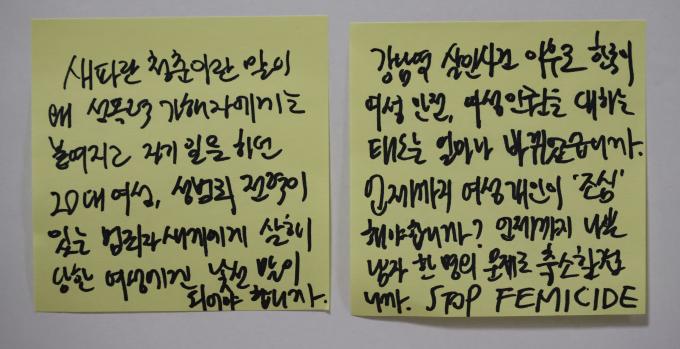 새파란 청춘이란 말이
왜 성폭력 가해자에게는
붙여지고 자기 일을 하던
20대 여성, 성범죄 전력이
있는 범죄자새끼에게 살해
당한 여성에겐 낯선 말이
되어야 합니까.
강남역 살인사건 이후로 한국이
여성 안전, 여성인권을 대하는
태도는 얼마나 바뀌었습니까.
언제까지 여성개인이 '조심'
해야합니까? 언제까지 나쁜
남자 한 명의 문제로 축소할겁
니까. STOP FEMICIDE